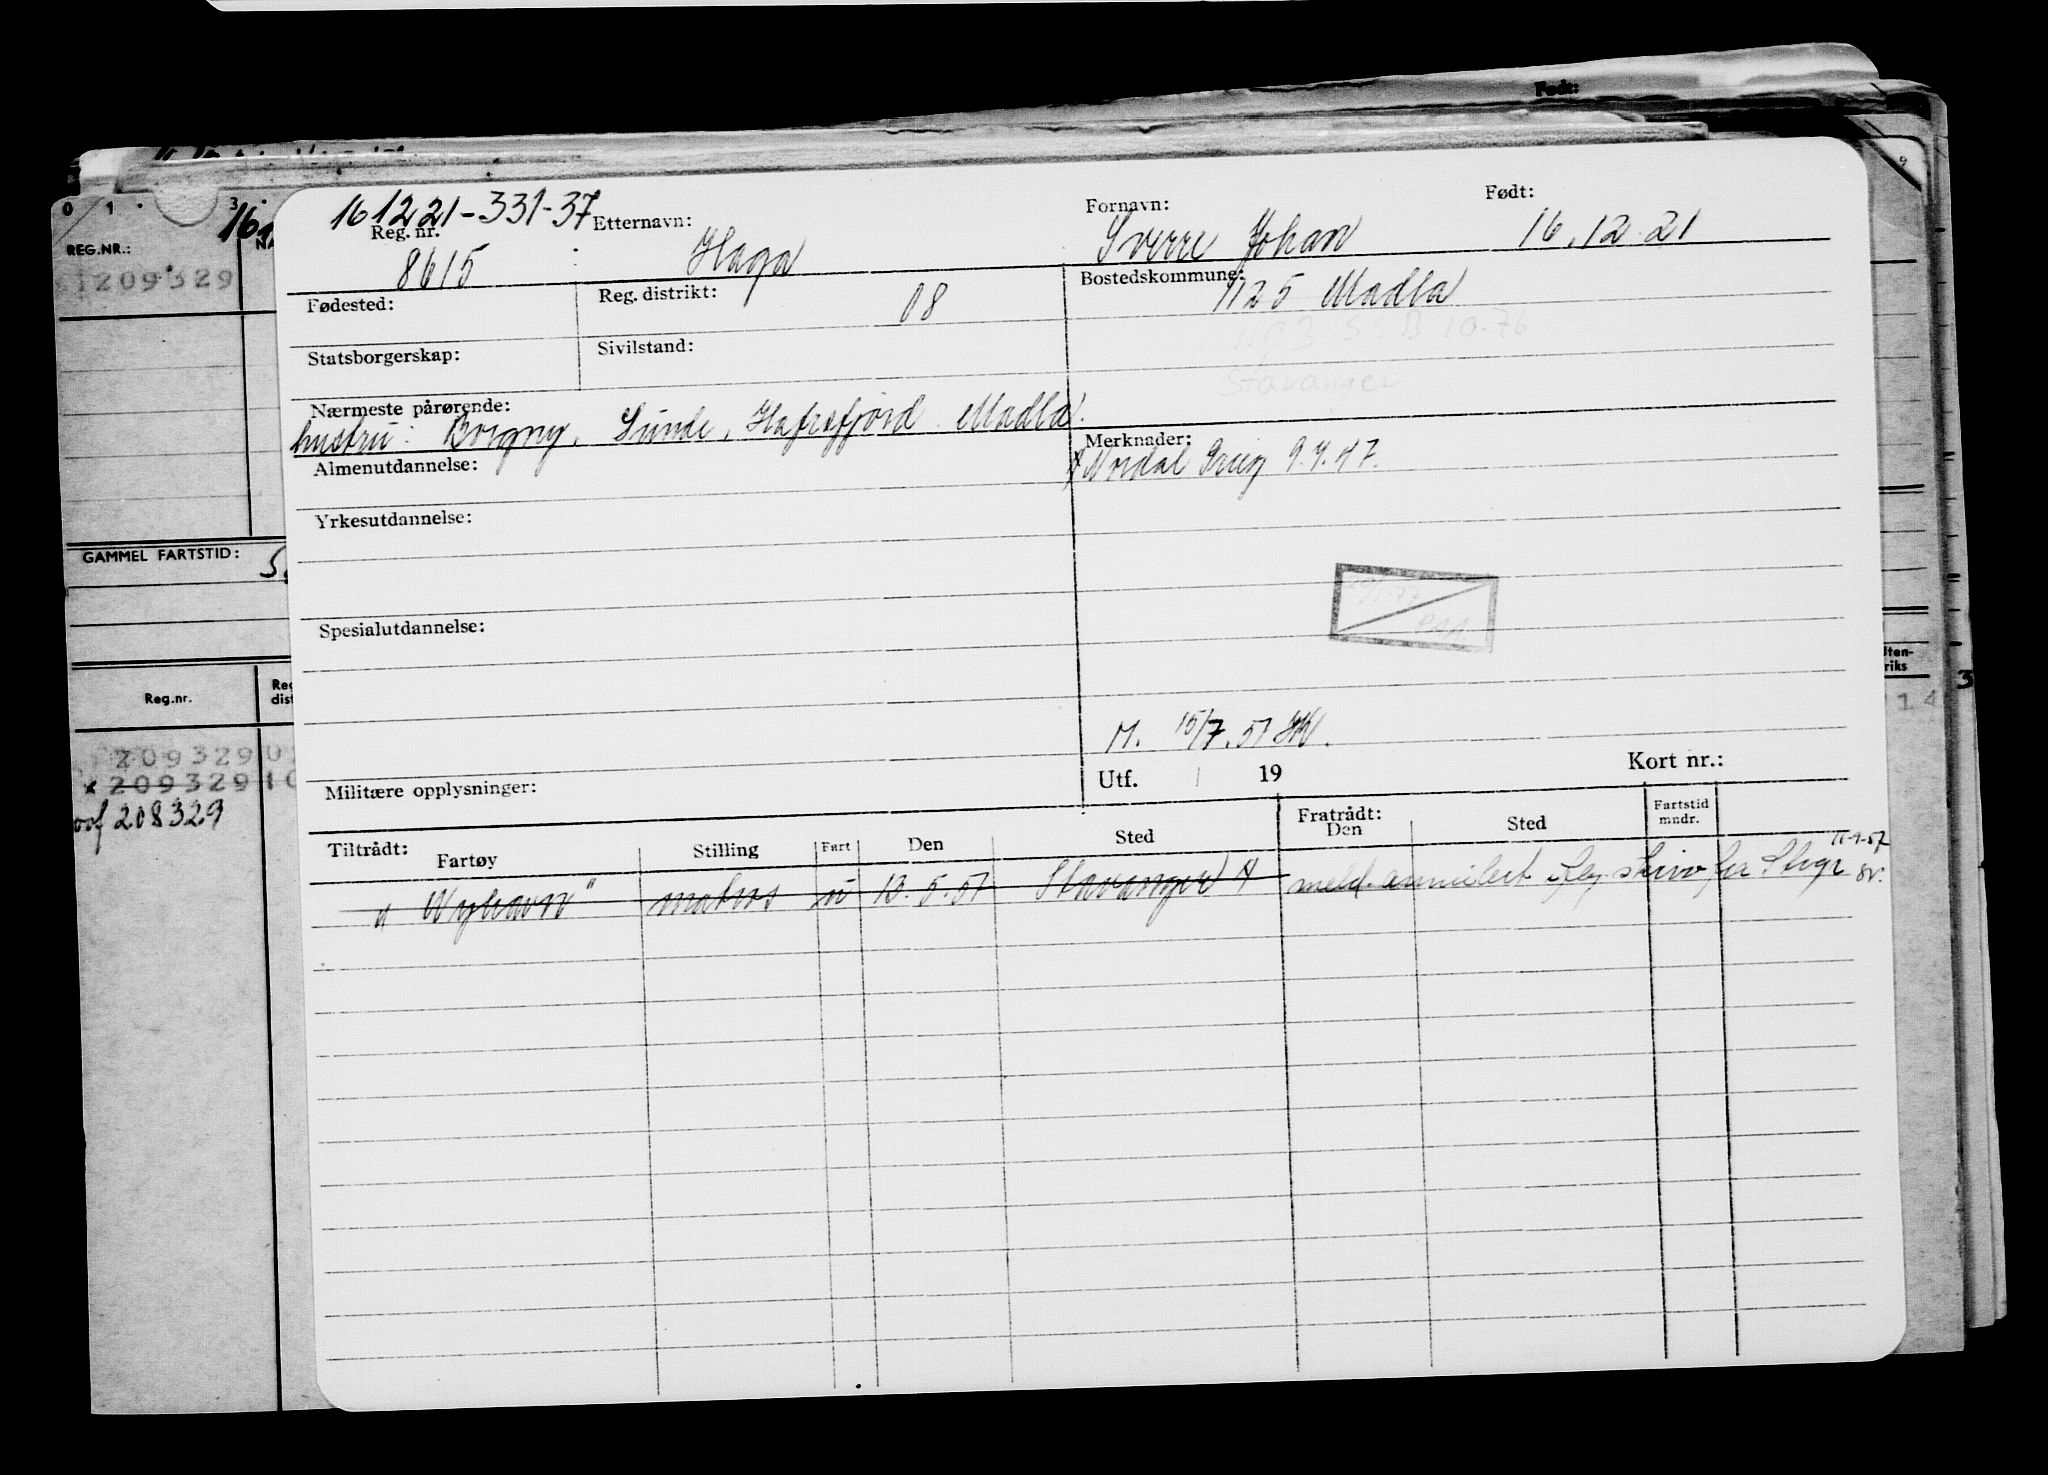 Født:
0 1 3
161
REG.NR.:
1209329
GAMMEL FARTSTID:
Reg.nr.
209329
209329 10
208329
161221-331-37
Reg. nr. Etternavn: Fornavn: Født:
8615 Haga Sverre Johan 16.12.21
Fødested: Reg. distrikt: 08 Bostedskommune: 1125 Madla
1103 SSB 10-76
Statsborgerskap: Sivilstand:
Stavanger
Nærmeste pårørende:
hustru: Borgny, Sunde, Hafrsfjord Madla.
Merknader:
Nordal Grieg 9.4.47.
Almenutdannelse:
Yrkesutdannelse:
Spesialutdannelse:
M. 15/7.57
Utf. 19 Kort nr.:
Militære opplysninger:
Tiltrådt: Fartøy Stilling Fart Den Sted Fratrådt: Den Sted Fartstid mndr.
"Nyhavn" matros u 13.5.57 Stavanger A meld. annulert
11-9-57
Uten-
riks
14
3